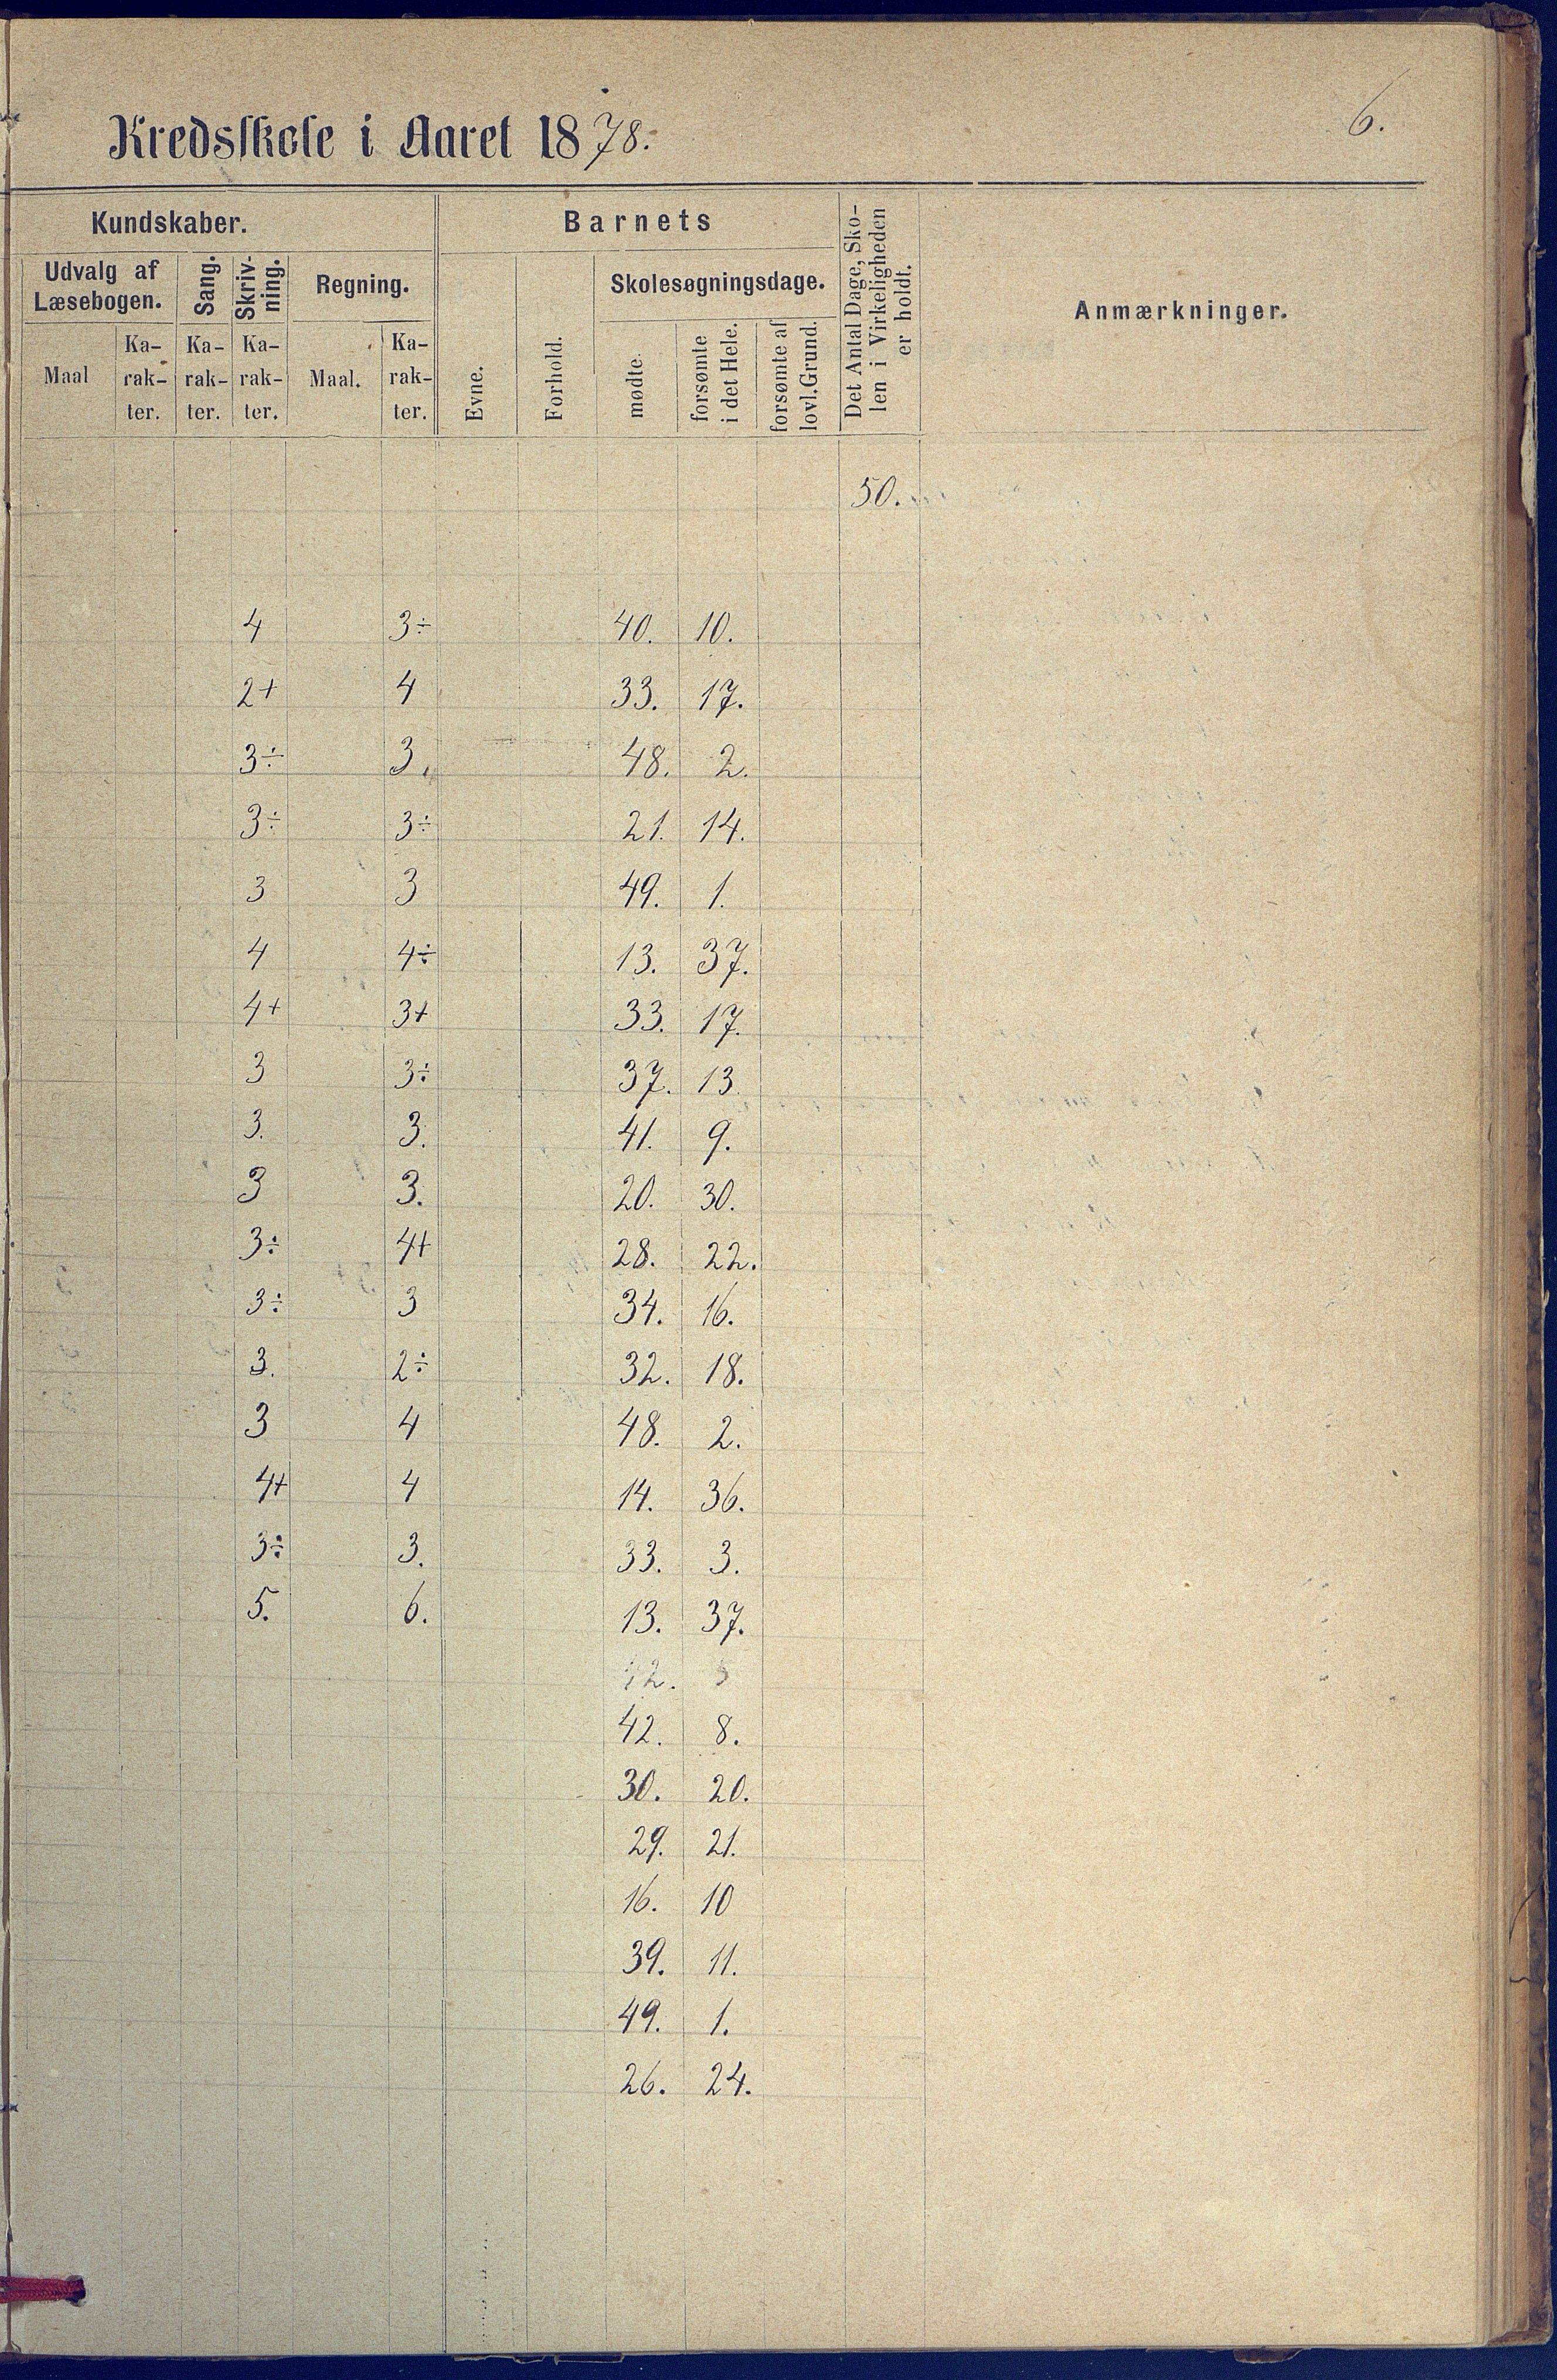 6.
Kredsskole i Aaret 1878.
Kundskaber.
Barnets
Det Antal Dage, Sko-
len i Virkeligheden
er holdt.
Anmærkninger.
Udvalg af
Læsebogen.
Sang.
Skriv-
ning.
Regning.
Evne.
Forhold.
Skolesøgningsdage.
Maal
Ka-
rak-
ter.
Ka-
rak-
ter.
Ka-
rak-
ter.
Maal.
Ka-
rak-
ter.
mødte.
forsømte
i det Hele.
forsømte af
lovl. Grund.
50.
4 3÷ 40. 10.
2+ 4 33. 17.
3÷ 3. 48. 2.
3÷ 3÷ 21. 14.
3 3 49. 1.
4 4÷ 13. 37.
4+ 3+ 33. 17.
3 3÷ 37. 13
3. 3. 41. 9.
3 3. 20. 30.
3÷ 4+ 28. 22.
3÷ 3 34. 16.
3. 2÷ 32. 18.
3 4 48. 2.
4+ 4 14. 36.
3÷ 3. 33. 3.
5. 6. 13. 37.
42. 8.
30. 20.
29. 21.
16. 10
39. 11.
49. 1.
26. 24.